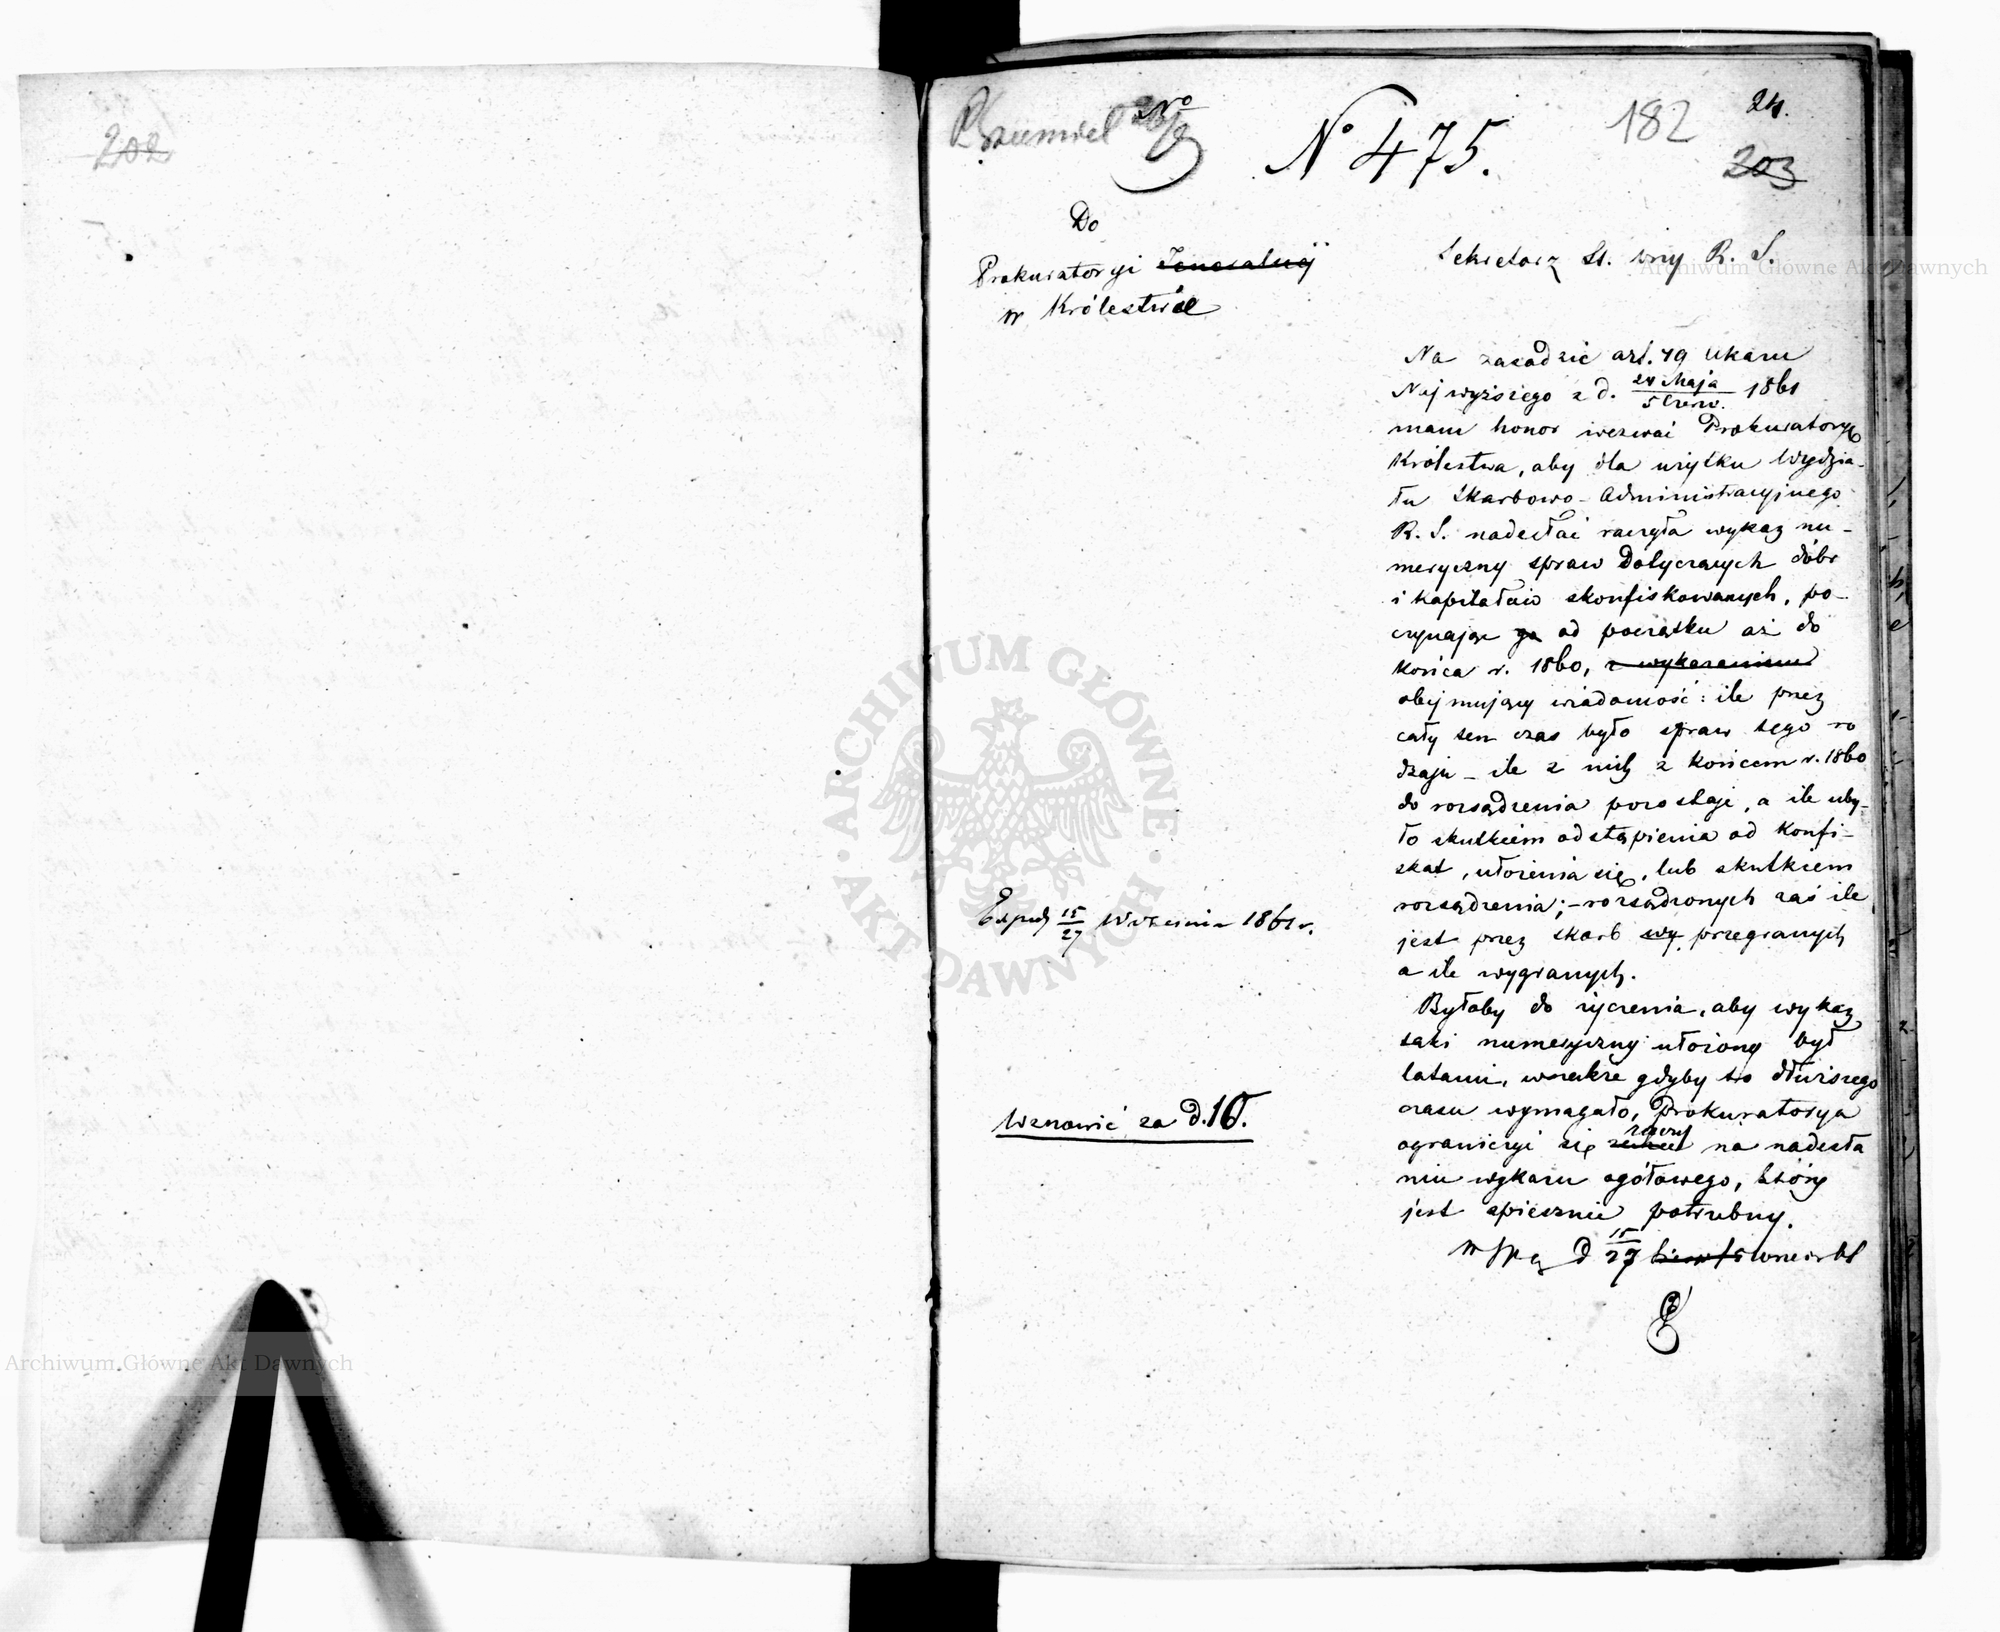 202
182
24.
203
Nro
No 475.
Do
Prokuratoryi Jeneralnej
w Królestwie
Sekretarz St. przy R. S.
Na zasadzie art. 79 Ukazu
Najwyższego z d. 24 Maja / 5 Czerw. 1861
mam honor wezwać Prokuratoryę
Królestwa, aby dla użytku Wydzia-
łu Skarbowo-Administracyjnego
R. S. nadesłać raczyła wykaz nu-
meryczny spraw dotyczących dóbr
i kapitałów skonfiskowanych, po-
czynając go od początku aż do
końca r. 1860, z wykazaniem
obejmujący wiadomość: ile przez
cały ten czas było spraw tego ro
dzaju – ile z nich z końcem r. 1860
do rozsądzenia pozostaje, a ile uby-
ło skutkiem odstąpienia od konfi-
skat, ułożenia się, lub skutkiem
rozsądzenia; – rozsądzonych zaś ile
jest przez skarb wy przegranych
a ile wygranych.
Byłoby do życzenia, aby wykaz
taki numeryczny ułożony był
latami, wszakże gdyby to dłuższego
czasu wymagało, Prokuratorya
ograniczyć się raczy na nadesła
niu wykazu ogółowego, który
jest spiesznie potrzebny.
d 15/27 Wrześ. 1861
Exped 15/27 Września 1861 r.
Wznowić za d. 10.
ARCHIWUM GŁÓWNE · AKT DAWNYCH ·
Archiwum Główne Akt Dawnych
Archiwum Główne Akt Dawnych